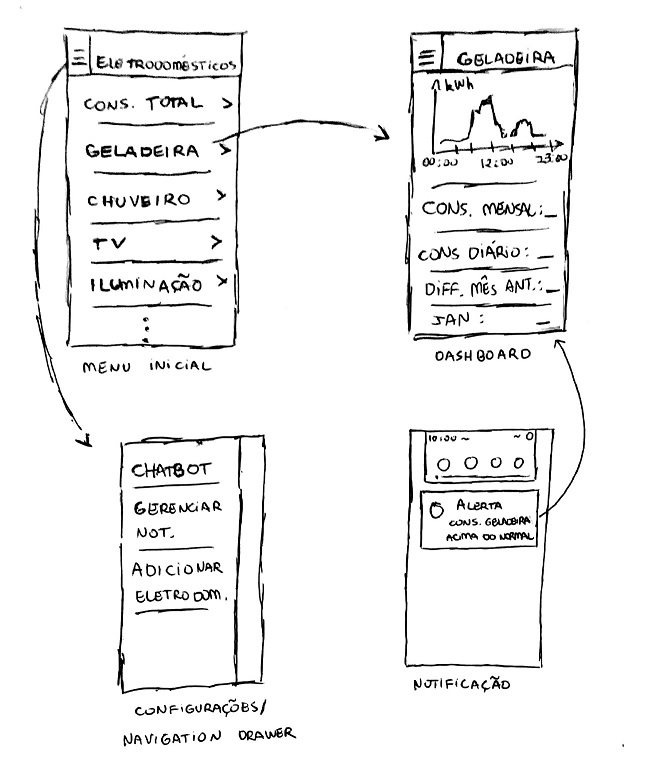 ELETRODOMÉSTICOS
CONS. TOTAL >
GELADEIRA >
CHUVEIRO >
TV >
ILUMINAÇÃO >
MENU INICIAL
GELADEIRA
kWh
00:00 12:00 23:00
CONS. MENSAL: _
CONS DIÁRIO: _
DIFF. MÊS ANT.: _
JAN : _
DASHBOARD
CHATBOT
GERENCIAR
NOT.
ADICIONAR
ELETRODOM.
CONFIGURAÇÕES/
NAVIGATION DRAWER
10:00 ~ ~ 0
ALERTA
CONS. GELADEIRA
ACIMA DO NORMAL
NOTIFICAÇÃO